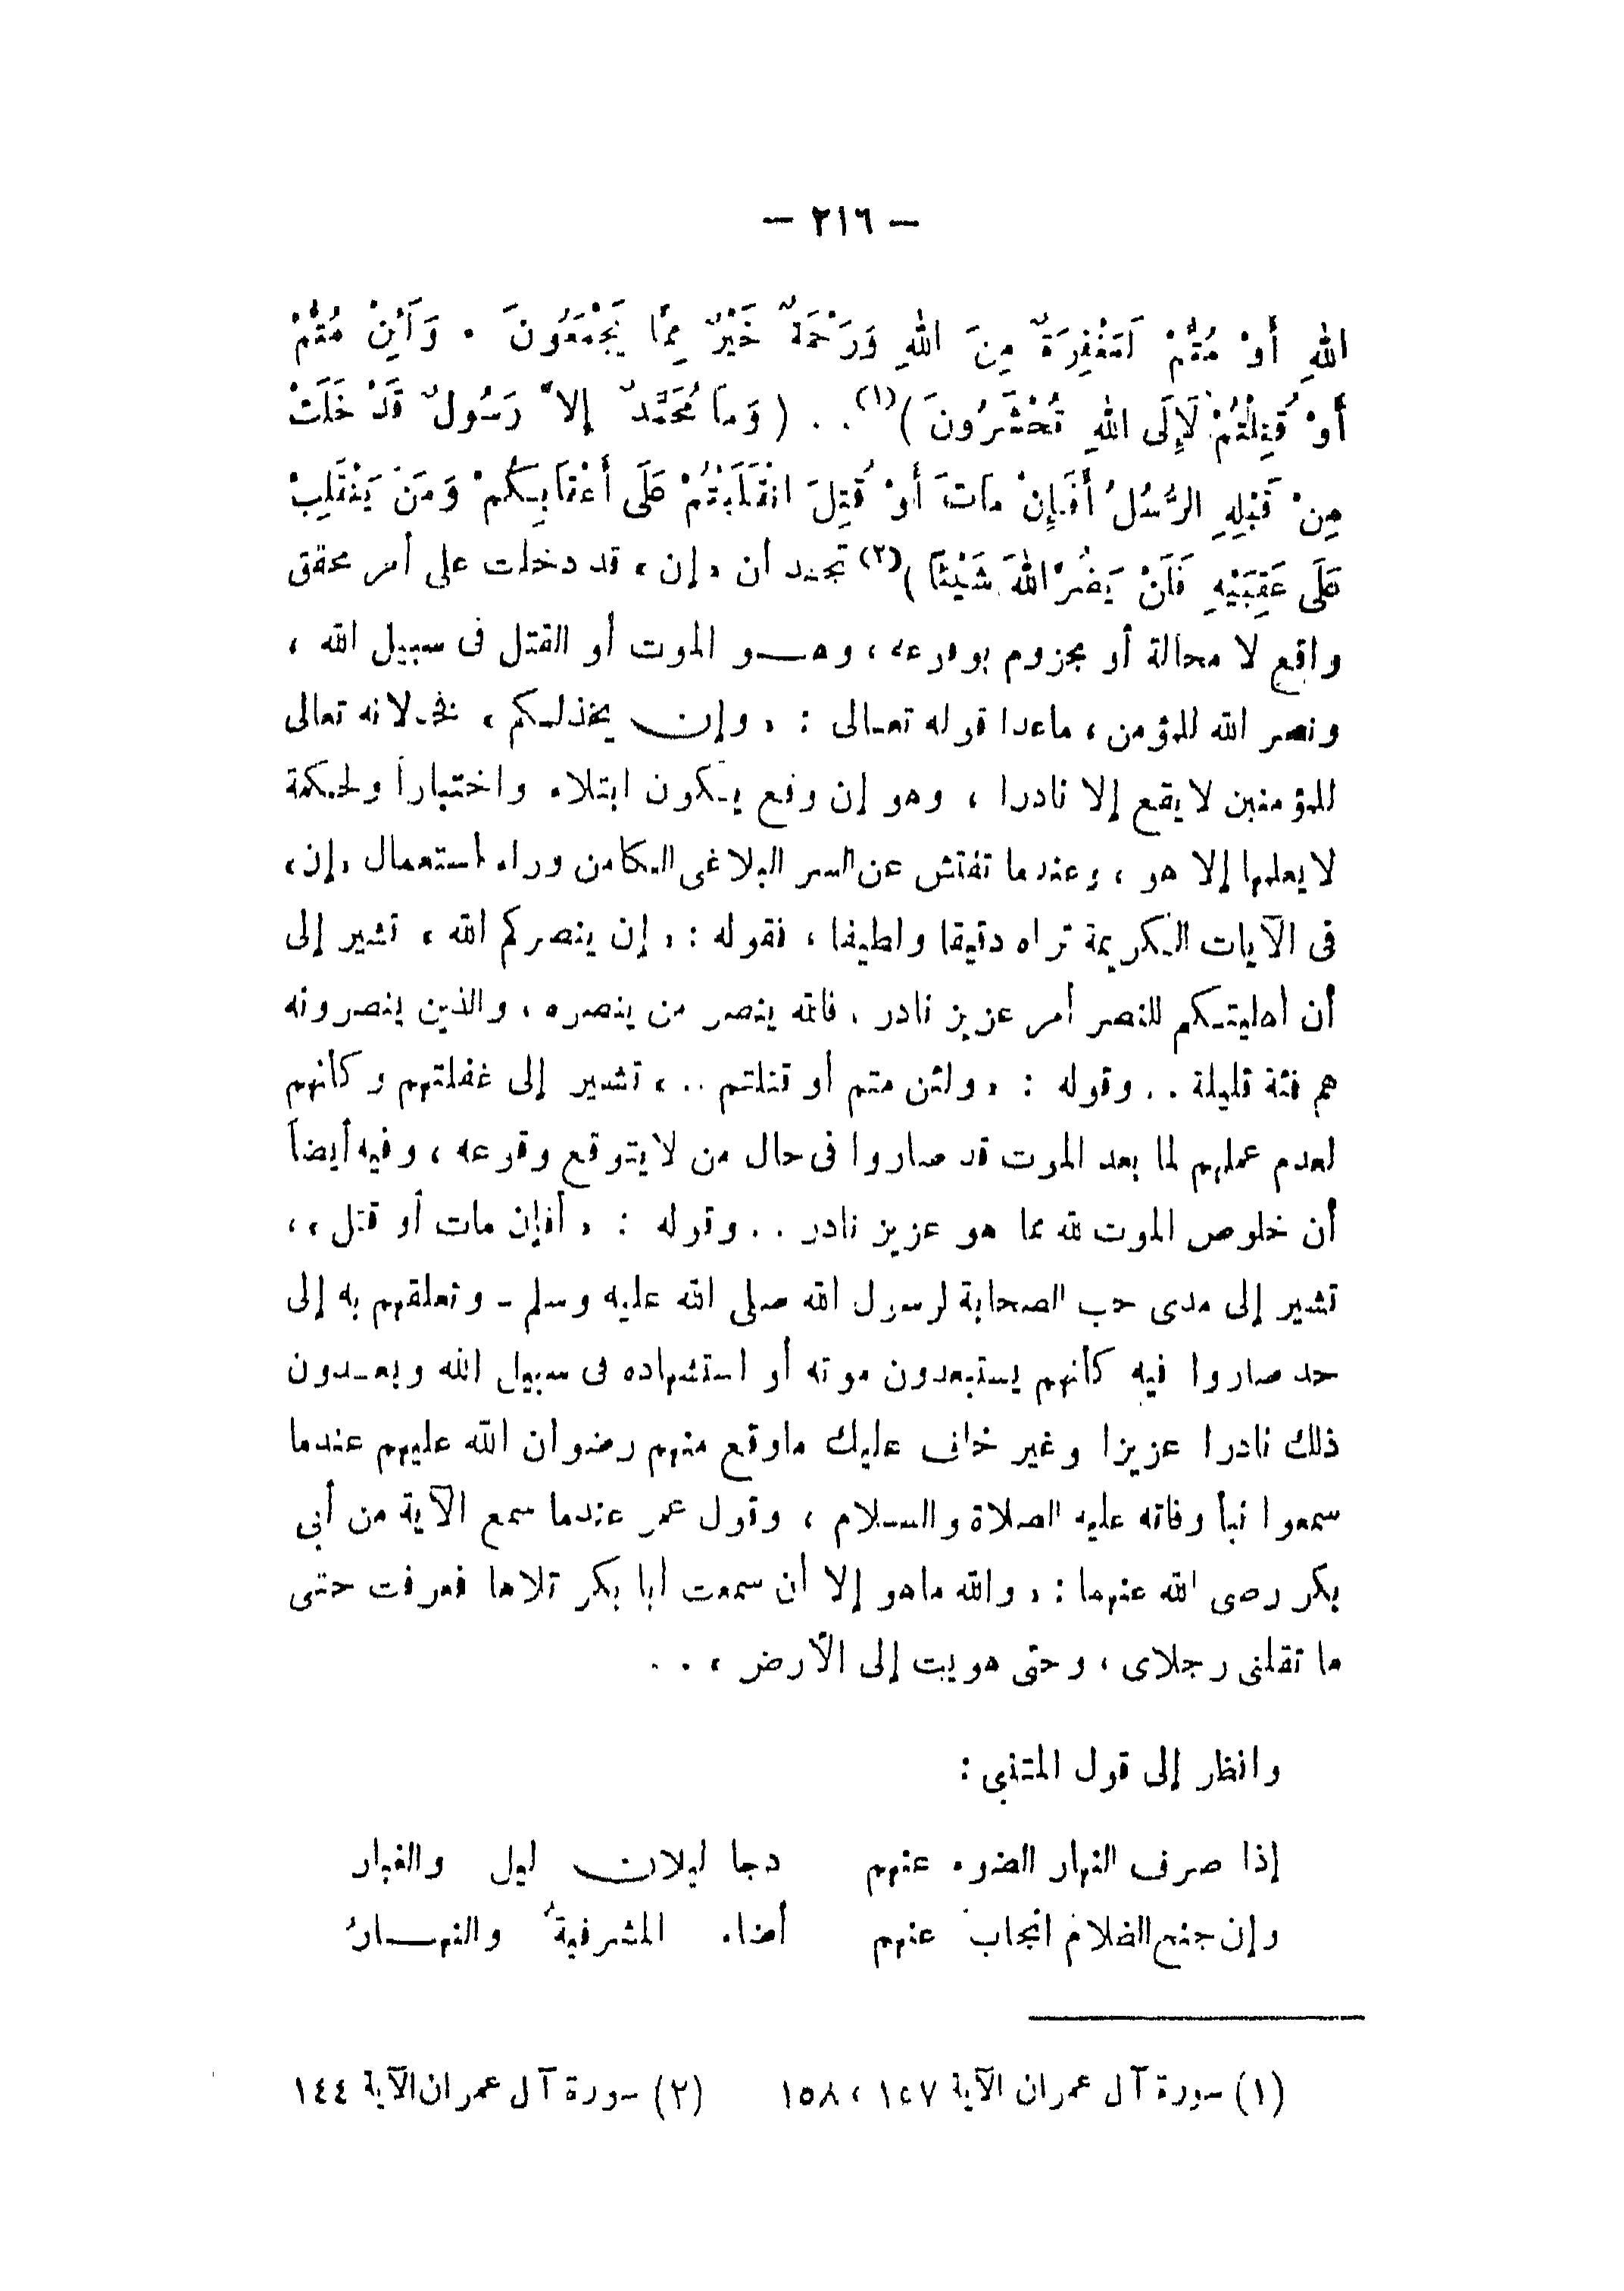 — ٢١٦ —
اللهِ أَوْ مُتُّمْ لَمَغْفِرَةٌ مِنَ اللهِ وَرَحْمَةٌ خَيْرٌ مِمَّا يَجْمَعُونَ . وَلَئِنْ مُتُّمْ
أَوْ قُتِلْتُمْ لَإِلَى اللهِ تُحْشَرُونَ )(١) . . ( وَمَا مُحَمَّدٌ إِلاَّ رَسُولٌ قَدْ خَلَتْ
مِنْ قَبْلِهِ الرُّسُلُ أَفَإِنْ مَاتَ أَوْ قُتِلَ انْقَلَبْتُمْ عَلَى أَعْقَابِكُمْ وَمَنْ يَنْقَلِبْ
عَلَى عَقِبَيْهِ فَلَنْ يَضُرَّ اللهَ شَيْئًا )(٢) تجد أن «إن» قد دخلت على أمر محقق
واقع لا محالة أو مجزوم بوقوعه ، وهو الموت أو القتل فى سبيل الله ،
ونصر الله للمؤمن ، ماعدا قوله تعالى : «وإن يخذلكم» فخذلانه تعالى
للمؤمنين لا يقع إلا نادرا ، وهو إن وقع يكون ابتلاء واختباراً ولحكمة
لا يعلمها إلا هو ، وعندما تفتش عن السر البلاغى الكامن وراء استعمال «إن»
فى الآيات الكريمة تراه دقيقا ولطيفا ، فقوله : «إن ينصركم الله» تشير إلى
أن أهليتكم للنصر أمر عزيز نادر . فالله ينصر من ينصره ، والذين ينصرونه
هم فئة قليلة . . وقوله : «ولئن متم أو قتلتم ..» تشير إلى غفلتهم وكأنهم
لعدم عملهم لما بعد الموت قد صاروا فى حال من لا يتوقع وقوعه ، وفيه أيضاً
أن خلوص الموت لله مما هو عزيز نادر . . وقوله : «أفإن مات أو قتل» ،
تشير إلى مدى حب الصحابة لرسول الله صلى الله عليه وسلم - وتعلقهم به إلى
حد صاروا فيه كأنهم يستبعدون موته أو استشهاده فى سبيل الله ويعدون
ذلك نادرا عزيزا وغير خاف عليك ماوقع منهم رضوان الله عليهم عندما
سمعوا نبأ وفاته عليه الصلاة والسلام ، وقول عمر عندما سمع الآية من أبى
بكر رضى الله عنهما : «والله ماهو إلا أن سمعت أبا بكر تلاها فعرفت حتى
ما تقلنى رجلاى ، وحتى هويت إلى الأرض» . .
وانظر إلى قول المتنبى :
إذا صرف النهار الضوء عنهم دجا ليلان ليل والغبار
وإن جنح الظلام انجاب عنهم أضاء المشرفيةُ والنهارُ
(١) سورة آل عمران الآية ١٥٧ ، ١٥٨ (٢) سورة آل عمران الآية ١٤٤